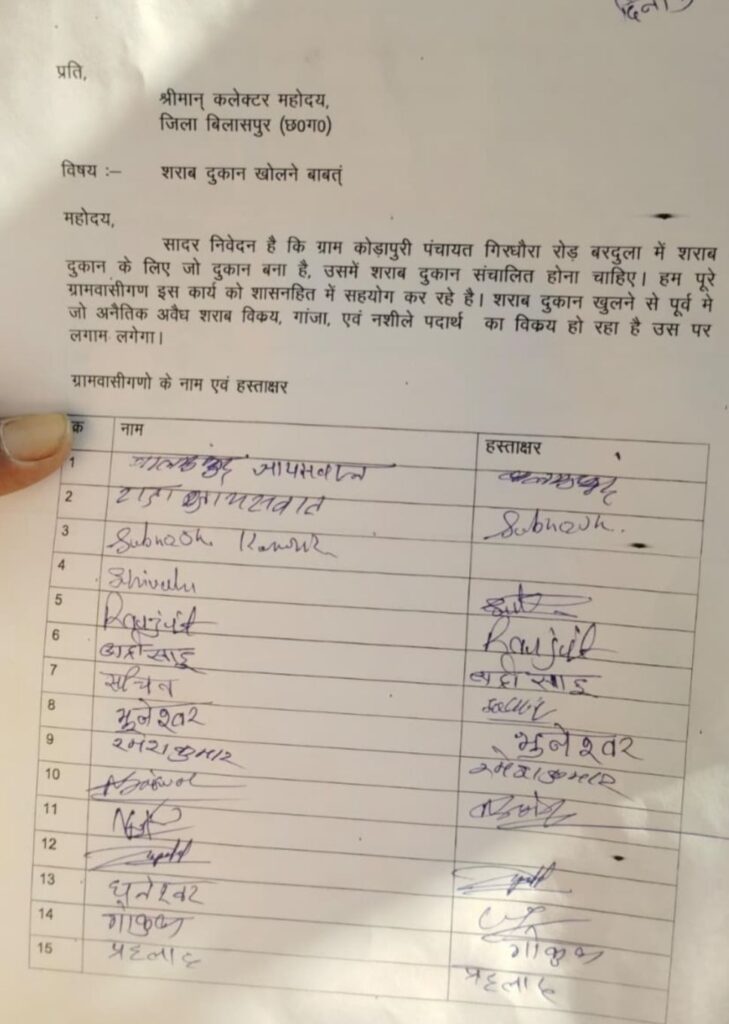 दिना
प्रति,
श्रीमान् कलेक्टर महोदय,
जिला बिलासपुर (छ0ग0)
विषय :– शराब दुकान खोलने बाबत्ं
महोदय,
सादर निवेदन है कि ग्राम कोड़ापुरी पंचायत गिरधौरा रोड़ बरदुला में शराब
दुकान के लिए जो दुकान बना है, उसमें शराब दुकान संचालित होना चाहिए। हम पूरे
ग्रामवासीगण इस कार्य को शासनहित में सहयोग कर रहे है। शराब दुकान खुलने से पूर्व मे
जो अनैतिक अवैघ शराब विकय, गांजा, एवं नशीले पदार्थ का विकय हो रहा है उस पर
लगाम लगेगा।
ग्रामवासीगणो के नाम एवं हस्ताक्षर
क्र नाम हस्ताक्षर
1 जायसवाल
2
3 Subhash Subhash.
4
5 Ranjit Ranjit
6 बद्री साहू बद्री साहू
7 सचिन
8 भुनेश्वर भुनेश्वर
9 रमेश कुमार रमेश कुमार
10
11
12
13 धनेश्वर
14 गोकुल गोकुल
15 प्रहलाद प्रहलाद